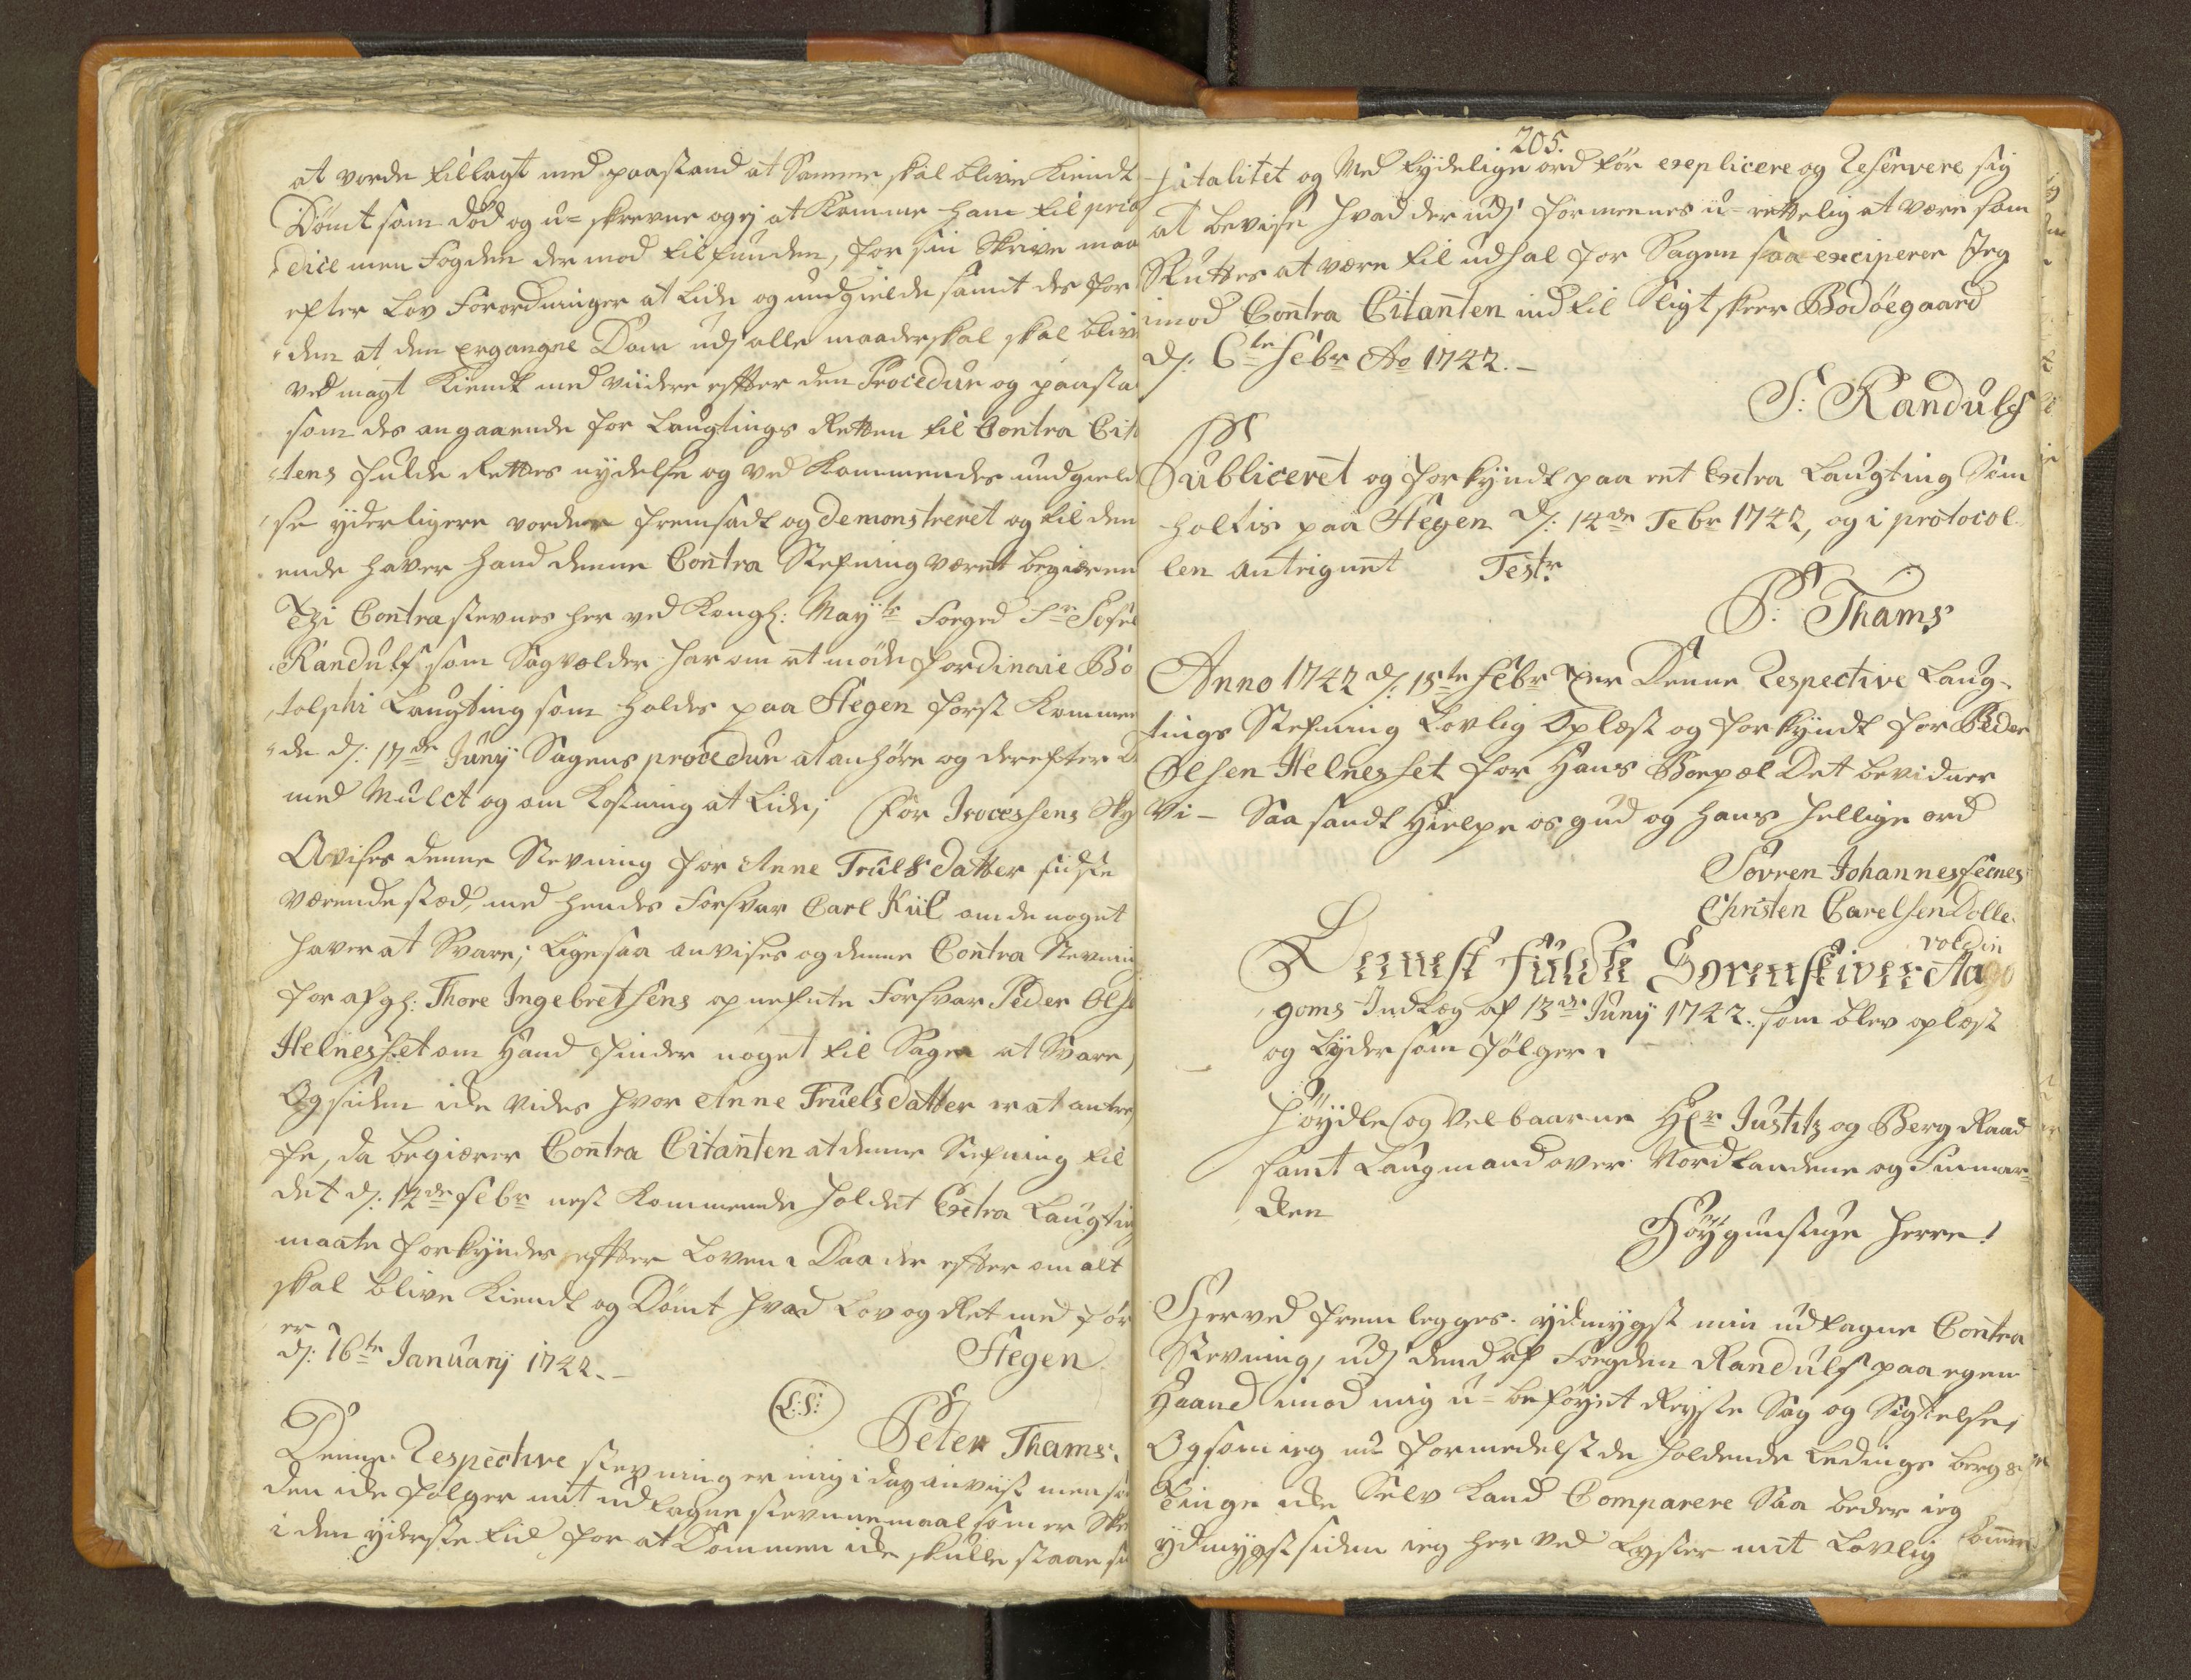 at vorde tillagt med paastand at Samme skal blive kiendt
Dømt som død og u-skreven og ej at komme ham til præju
dice men Fogden der mod tilfunden, for sin Skrive maa
efter Lov Forordninger at Lide og undgielde samt des for
uden at den Ergangne Dom udj alle maader skal skal blive
ved magt kiendt med viidere efter den Procedur og paasta
som des angaaende for Laugtings Retten til Contra Cita
tens fulde Rettes nydelse og ved kommendes undgield
se yderligere vorder fremsadt og demonstreret og til den
ende haver hand denne Contra Stefning været begierende
Thi Contra stevnes her ved Kongl: Mayts Foeged Sr
Randulf som Sagvolder har om at møde for dinaie Bo
tolphi Laugting som holdes paa Stegen først kommen
de d: 17de Juny Sagens procedur at anhøre og derefter D
med Mulct og om kostning at Lide; For Processens Sky
Avises denne Stevning for Anne Truls datter sidste
værende sted, med hendes Forsvar Carl Kiil om de noget
haver at Svare; Ligesaa anvises og denne Contra Stevning
for afg: Thore Ingebretsens opnefnte Forsvar Peder Olse
Helnesset om Hand finder noget til Sagen at Svare,
Og siden icke vides hvor Anne Truelsdatter er at antref
fe, da begierer Contra Citanten at denne Stefning til
det d: 14de Febr nest kommende holdet Extra Laugting
maate forkyndes efter Loven. Daa der efter om alt
skal blive kiendt og Dømt hvad Lov og Ret med før
er
d: 16te January 1742. Stegen
L:S: Peter Thams.
Denne Respective stevning er mig i dag anviist men saa
den icke følger mit udtagne stevnemaal som er Ske
i den yderste tid for at Dommen icke skulle staae
205.
talitet og Med tydelige ord før explicere og Reservere sig
at bevise hvad der udj formeenes u-rettelig at være som
Skuttes at være til udhal for Sagen saa exciperer Jeg
imod Contra Citanten indtil Sligt skeer Bodøegaard
d: 6te Febr Ao 1742.
S: Randulf
Publiceret og forkyndt paa et Extra Laugting Som
holtis paa Stegen d: 14de Febr 1742, og i protocol
len anteignet Testr
P: Thams
Anno 1742 d: 15te Febr Er Denne Respective Laug-
tings Stefning Lovlig Oplæst og forkyndt for Peder
Olsen Helnesset for Hans Boepæl Det bevidner
Vi - Saa sandt Hielpe os gud og hans hellige ord
Sørren Johannes
Christen Carelsen Dolle
vold in
Dernest fuldte Sorenskiver Aa
goms Indlæg af 13de Juny 1742. som blev oplæst
og Lyder som følger.
Høyædle og Velbaarne Hr Justitz og Berg Raad
samt Laugmand over Nordlandene og Finmar-
ken
Høygunstige Herre!
Herved frem legges ydmygst min udtagne Contra
Stevning, udj dend af Foegden Randulf paa egen
Haand imod mig u-beføyet Reyste Sag og Sigtelse;
Og som ieg nu formedelst de holdende Ledings berg
Tinge icke Selv kand Comparere Saa beder ieg
ydmygst siden ieg her ved Lyster mit Lovlig